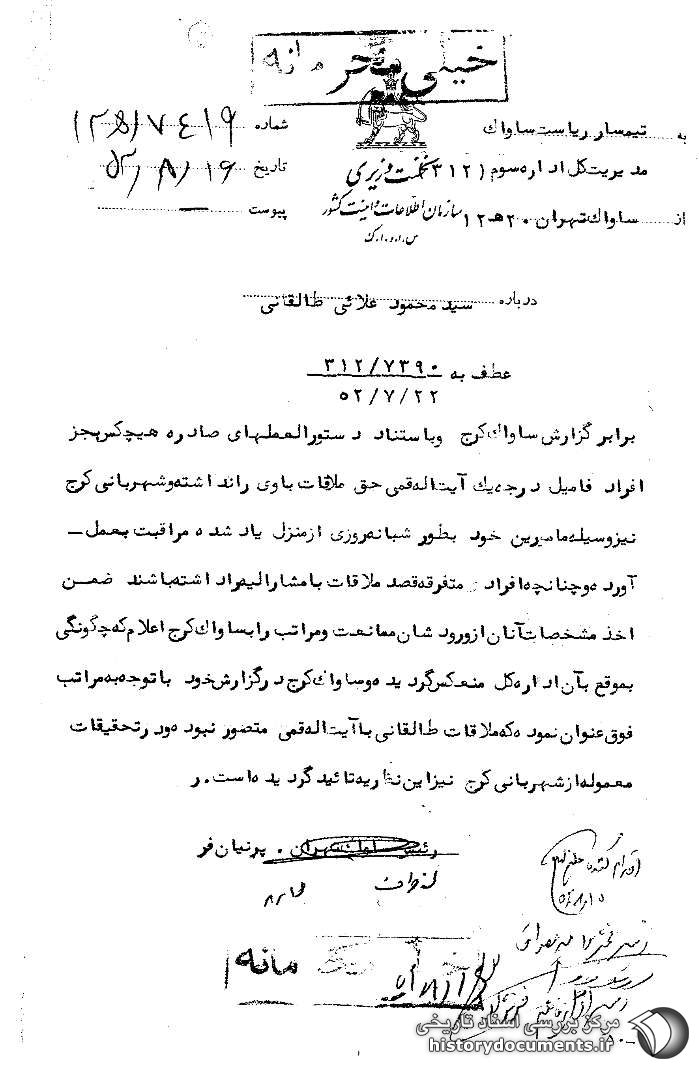 خیلی محرمانه
به تیمسار ریاست ساواک
شماره ۱۲ﻫ/۷٤۱۹
مدیریت کل اداره سوم (۳۱۲
نخست وزیری
تاریخ ۵۲/۸/۱۶
از ساواک تهران ۲۰ ﻫ ۱۲
سازمان اطلاعات و امنیت کشور
پیوست —
س.ا.و.ا.ک
درباره سید محمود علائی طالقانی
عطف به ۳۱۲/۷۳۹۰
۵۲/۷/۲۲
برابر گزارش ساواک کرج وباستناد دستورالعملهای صادره هیچکس بجز
افراد فامیل درجه یک آیت اله قمی حق ملاقات باوی را نداشته وشهربانی کرج
نیز وسیله مامورین خود بطور شبانه روزی از منزل یاد شده مراقبت بعمل ـ
آورده وچنانچه افراد متفرقه قصد ملاقات با مشارالیه را داشته باشند ضمن
اخذ مشخصات آنان از ورود شان ممانعت ومراتب را بساواک کرج اعلام که چگونگی
بموقع بآن اداره کل منعکس گردیده وساواک کرج در گزارش خود با توجه به مراتب
فوق عنوان نموده که ملاقات طالقانی با آیت اله قمی متصور نبوده ودر تحقیقات
معموله از شهربانی کرج نیز این نظریه تائید گردیده است. ر
رئیس ساواک تهران . پرنیان فر
اقدام کننده
خیلی محرمانه
مرکز بررسی اسناد تاریخی
historydocuments.ir